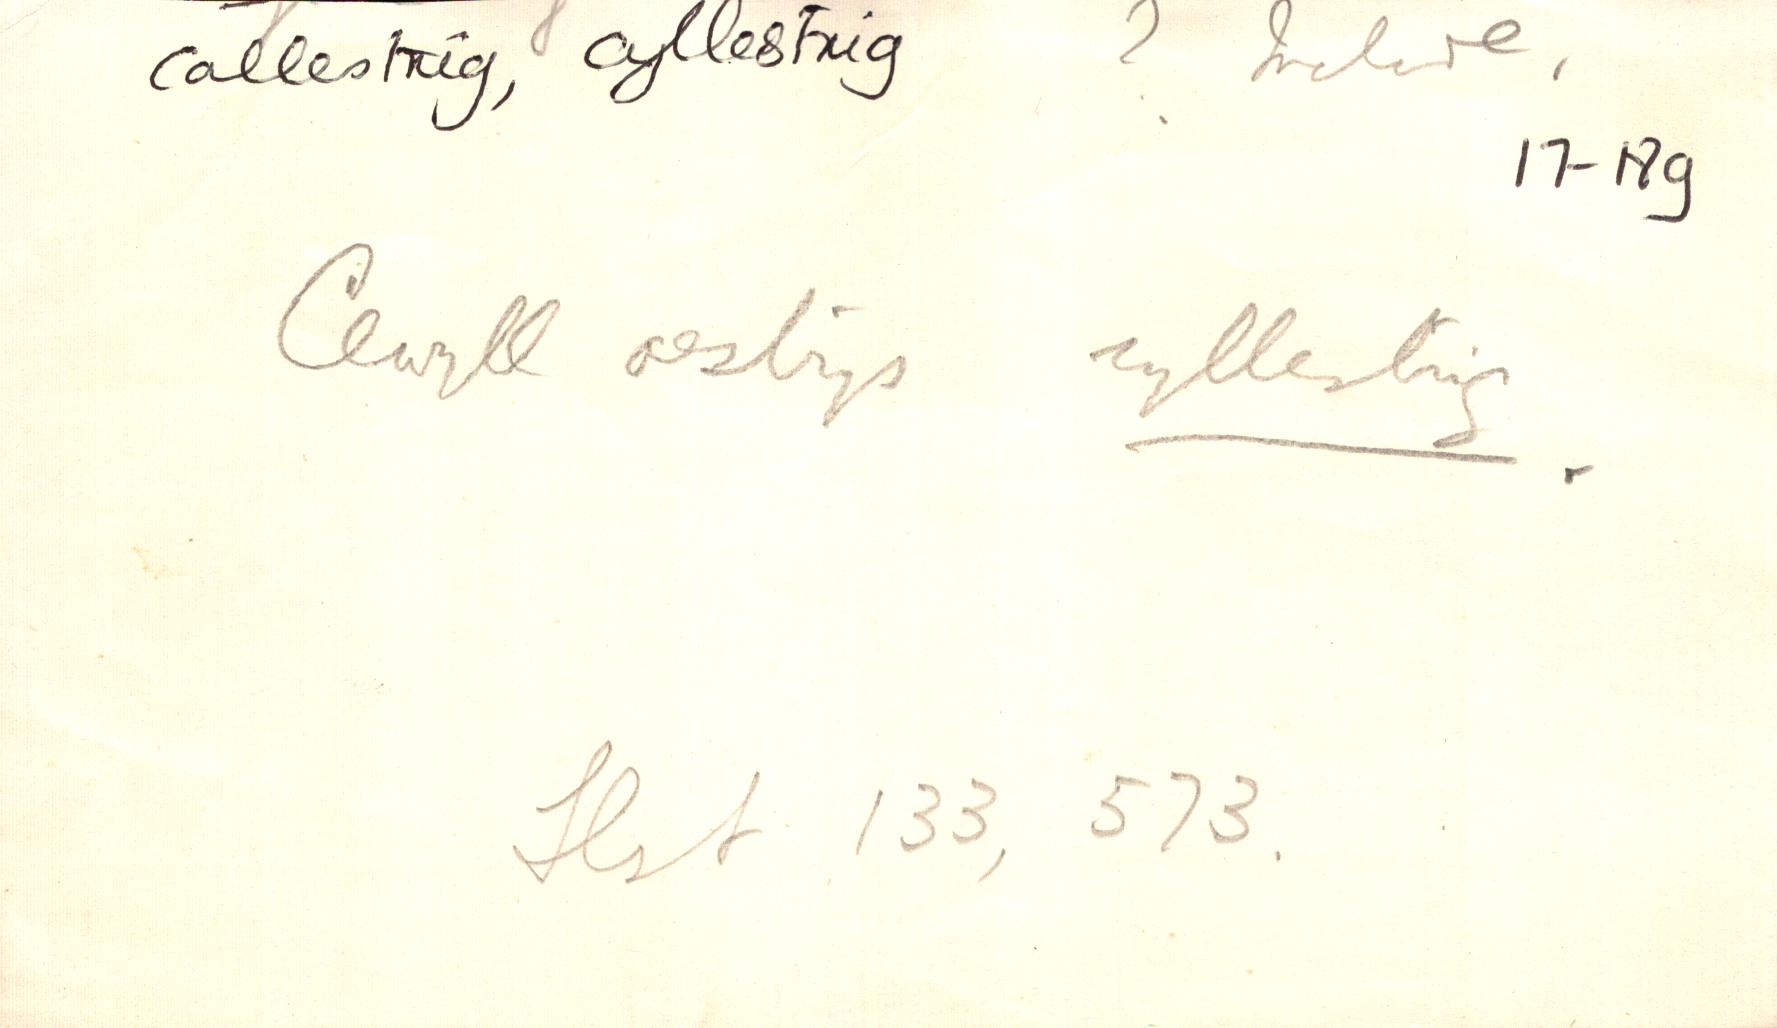 callestrig, cyllestrig ? Include,
17-18g
Cewyll oestrys cyllestrig.
Llst 133, 573.